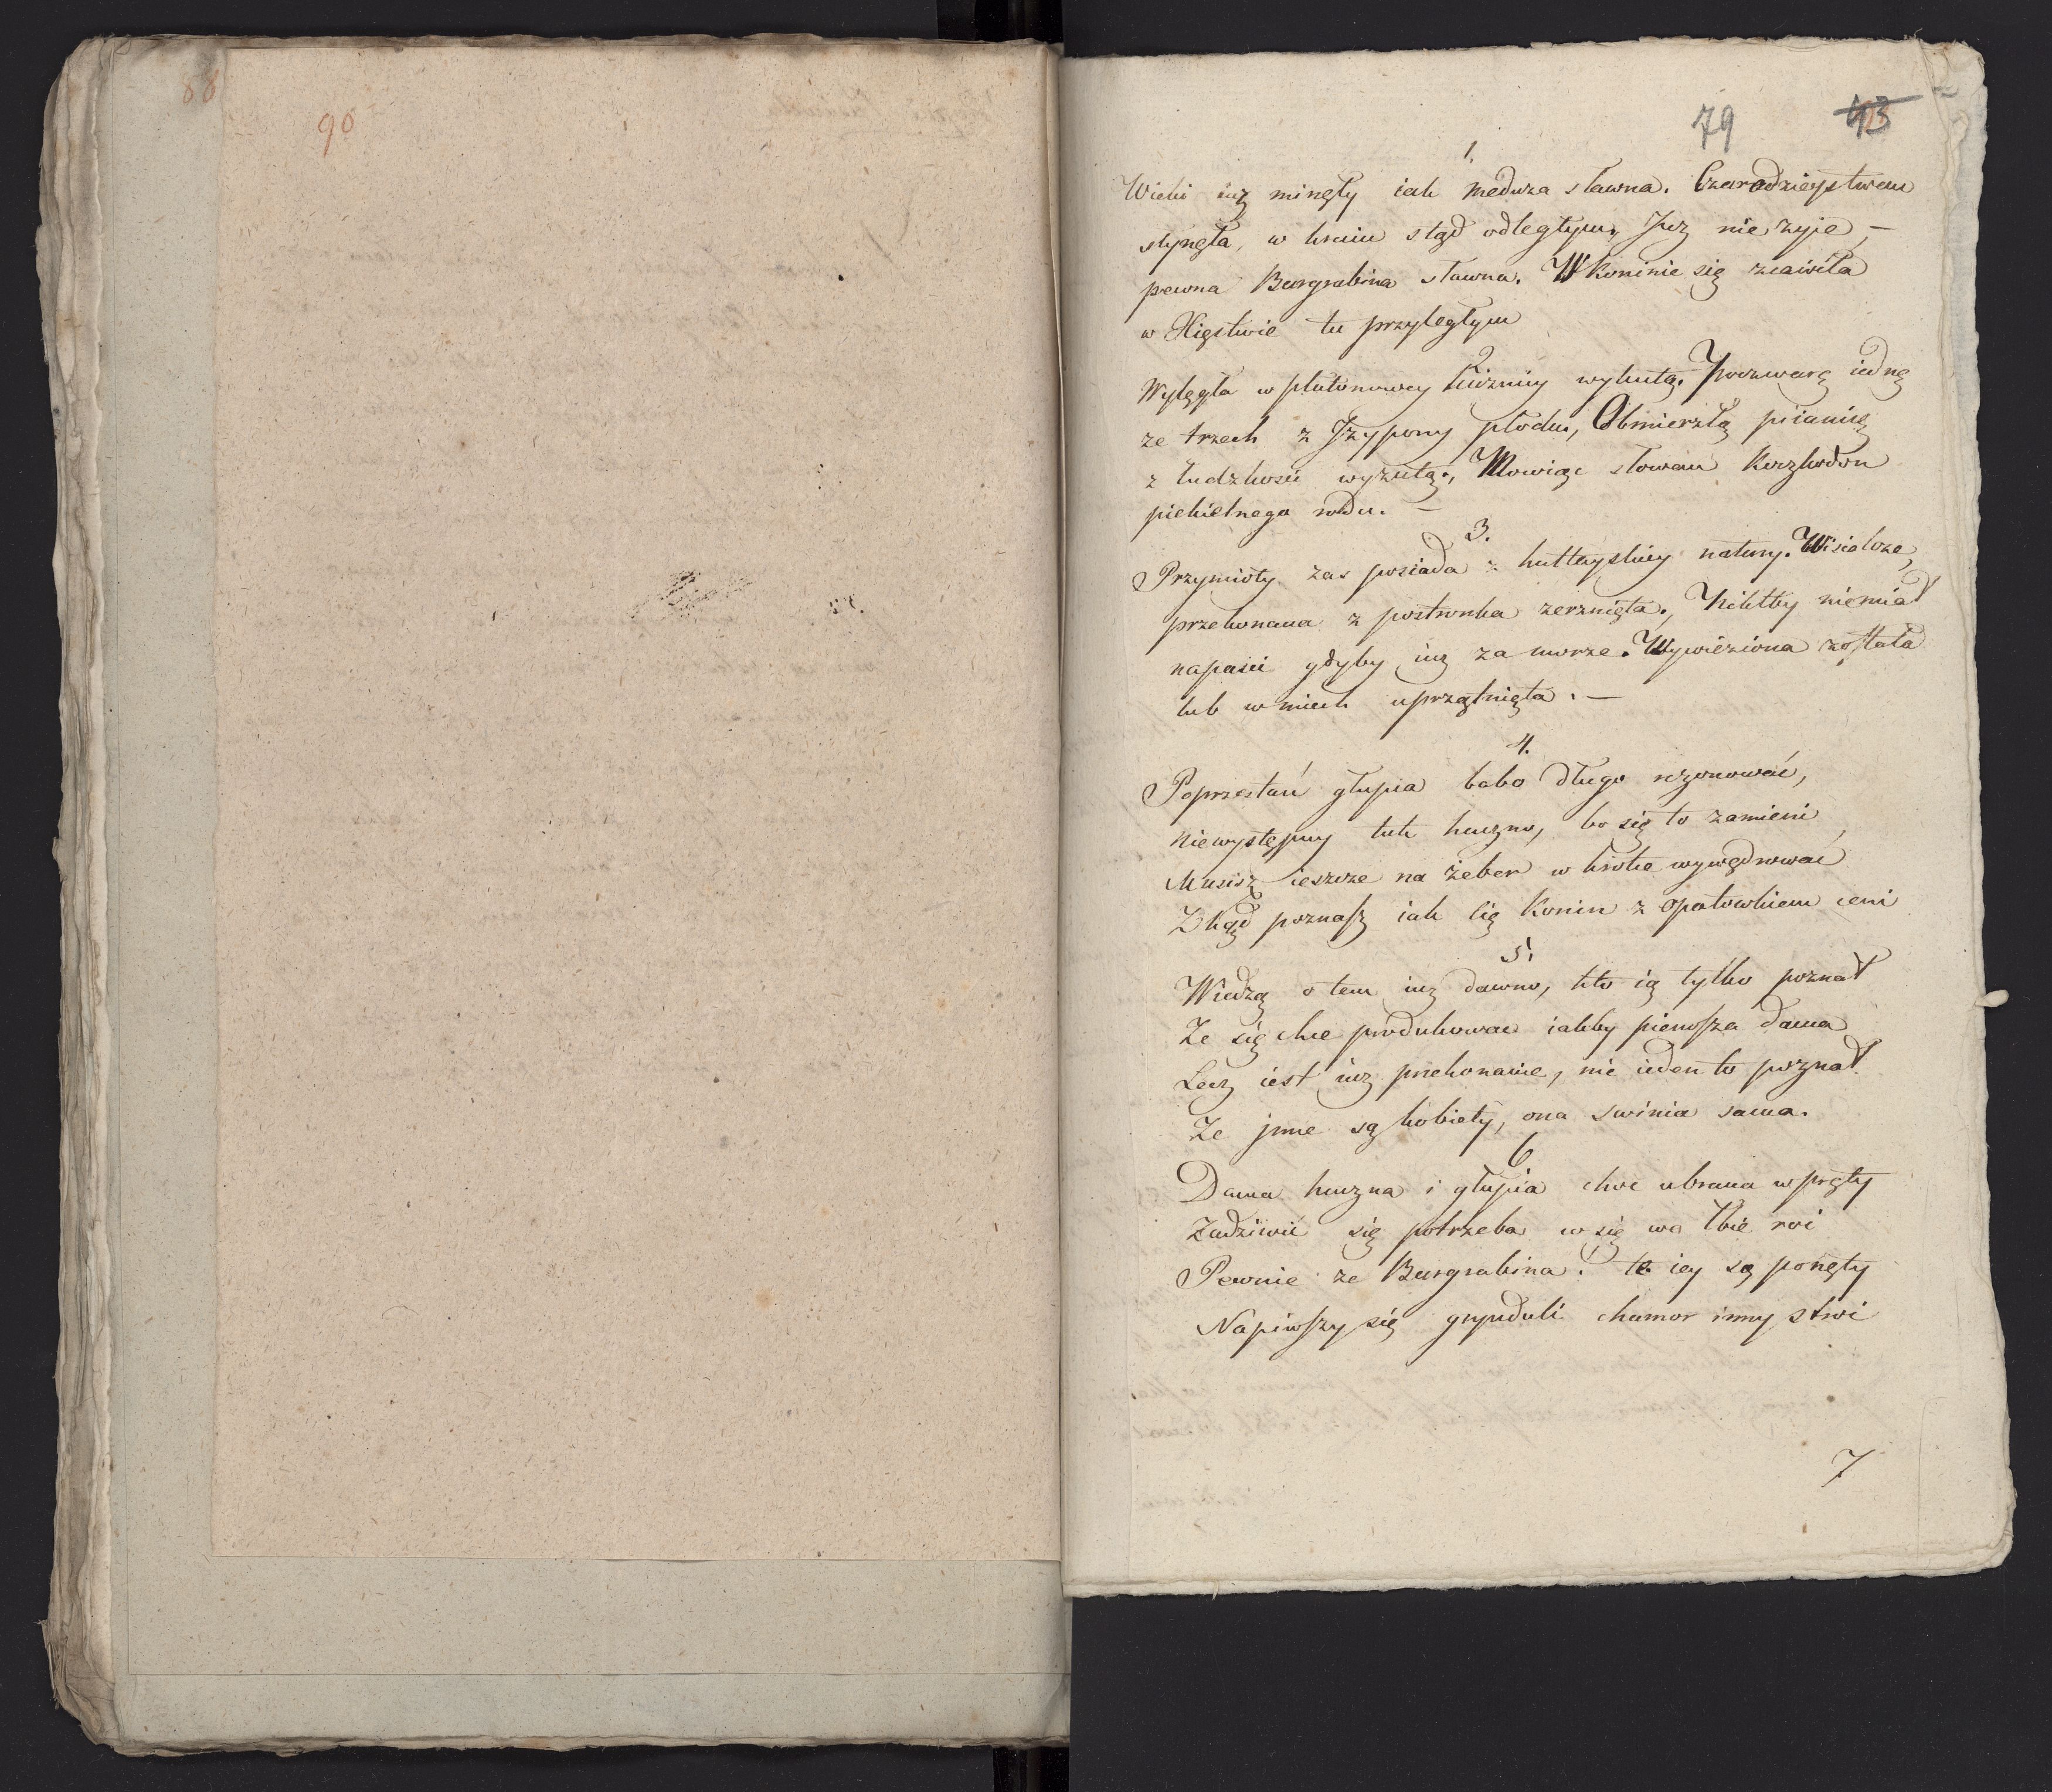 86
90
79 93
1.
Wieki iuz minęły iak meduza sławna. Czarodzieystwem
słynęła, w kraiu stąd odległym, Juz nie zyie, –
pewna Burgrabina sławna. W Koninie się zeaiwiła
w Xięstwie tu przyległym
2
Wylęgła w plutonowey kuzniy wykutą. Poczwarę iedną
ze trzech z Tzypony płodu, Obmierzłą piianicę
z ludzkosci wyzutą., Mowiąc słowem Kuczkodon
piekielnego rodu. –
3.
Przymioty zas posiada z hultayskiey natury. Wisielcze,
przekonana z postronka zerznięta., Niktby niemiał
napasci gdyby iuz za morze. Wywieziona została
lub w miech uprzątnięta. –
4.
Poprzestań głupia babo długo rezonować,
Niewystępuy tak huczno, bo się to zamieni
Musisz ieszcze na żeber w krotce wywędrować
Zkąd poznasz iak się Konin z Opatowkiem ceni
5.
Wiedzą o tem iuz dawno, kto ią tylko poznał
Ze się chce produkowac iakby pierwsza dama
Lecz iest iuz przekonanie, nie ieden to poznał
Ze jnne są kobiety, ona swinia sama.
6
Dama huczna i głupia choc ubrana w pręty
Zadziwić się potrzeba co się we łbie roi
Pewnie ze Burgrabina! te iey są ponęty
Napiwszy się gryuduli chumor inny stroi
7